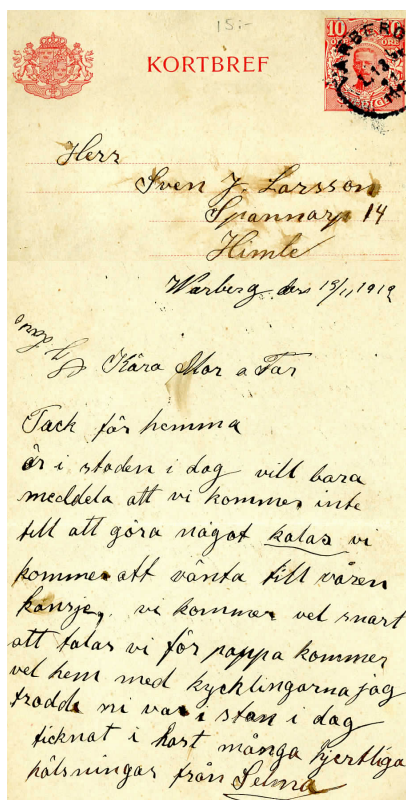 15:-
KORTBREF
10 ÖRE
VARBERG
Herr
Sven J. Larsson
Spannarp 14
Himle
Warberg den 13/11 1912
Kära Mor a Far
Tack för hemma
är i staden i dag vill bara
meddela att vi kommer inte
till att göra något kalas vi
kommer att vänta till våren
kansje, vi kommer vel snart
att talas vi för pappa kommer
vel hem med kycklingarna jag
trodde ni var i stan i dag
ticknat i hast många hjertliga
hälsningar från Selma